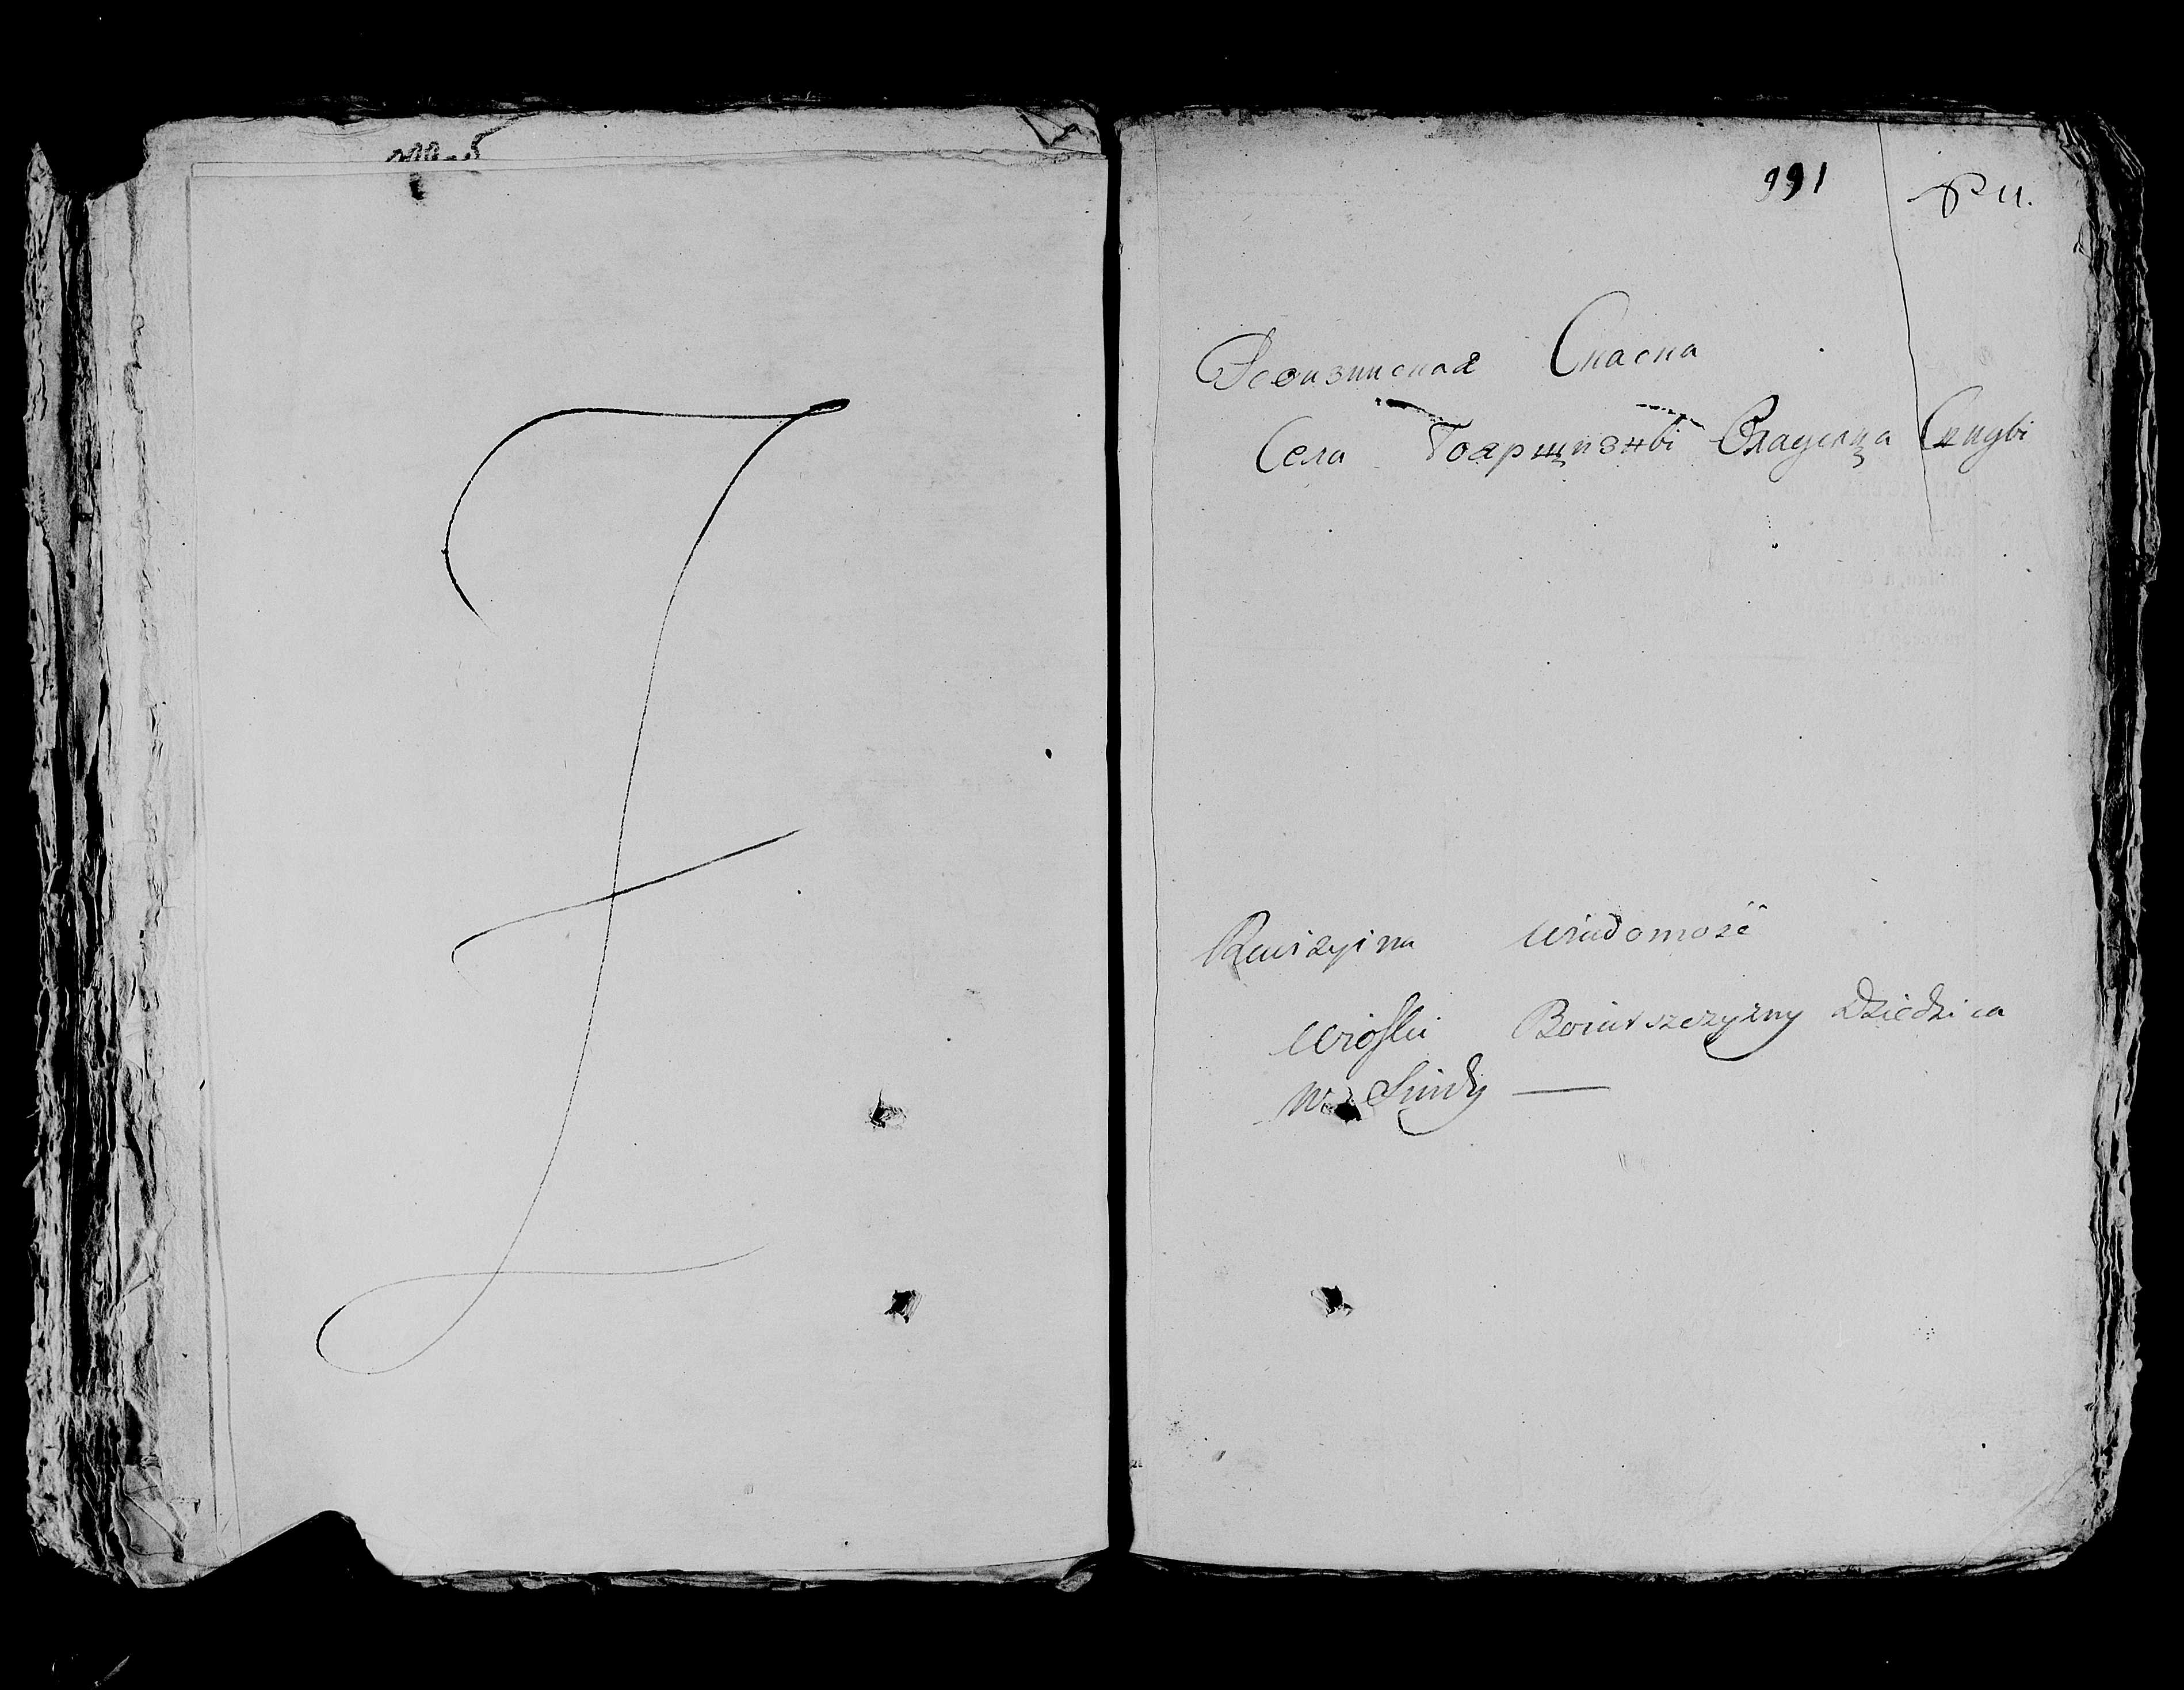 991
Ревизинская Скаска
Села Боярщизны Владелца Снуды
Rewizyina wiadomość
Wioski Boiarszczyzny Dziedzica
W Snudy —